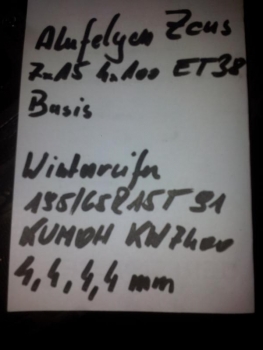 Alufelgen Zeus
7x15 4x100 ET38
Basis
Winterreifen
195/65R15T 91
KUMOH KW7400
4,4,4,4 mm